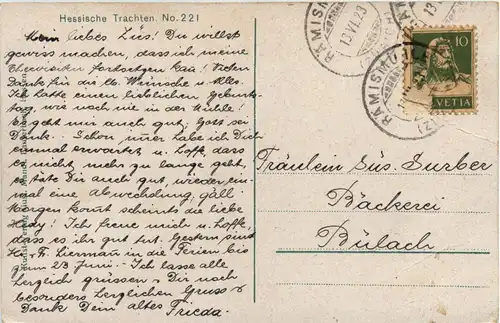 Hessische Trachten. No. 221
Mein liebes Züs! Du willst
gewiss machen, dass ich meine
fortsetzen kan! Vielen
Dank für die lb. Wünsche u. Alles.
Ich hatte einen lieblichen Geburts-
tag, wie noch nie in der Mühle!
Es geht mir auch gut, Gott sei
Dank. Schon imer habe ich Dich
einmal erwartet u. hoffe, dass
es nicht mehr zu lange geht,
es täte Dir auch gut, wieder ein-
mal eine Abwechslung, gäll.
Morgen komt scheints die liebe
Hedy! Ich freue mich u. hoffe,
dass es ihr gut tut. Gestern sind
H. u. F. Liermann in die Ferien bis
zum 23 Juni. Ich lasse alle
herzlich grüssen u. Dir noch
besonders herzlichen Gruss u.
Dank Dein altes Frieda.
RÄMISMÜHLE
13.VI.23
RÄMISMÜHLE (Z)
10
HELVETIA
Fräulein Züs. Surber
Bäckerei
Bülach